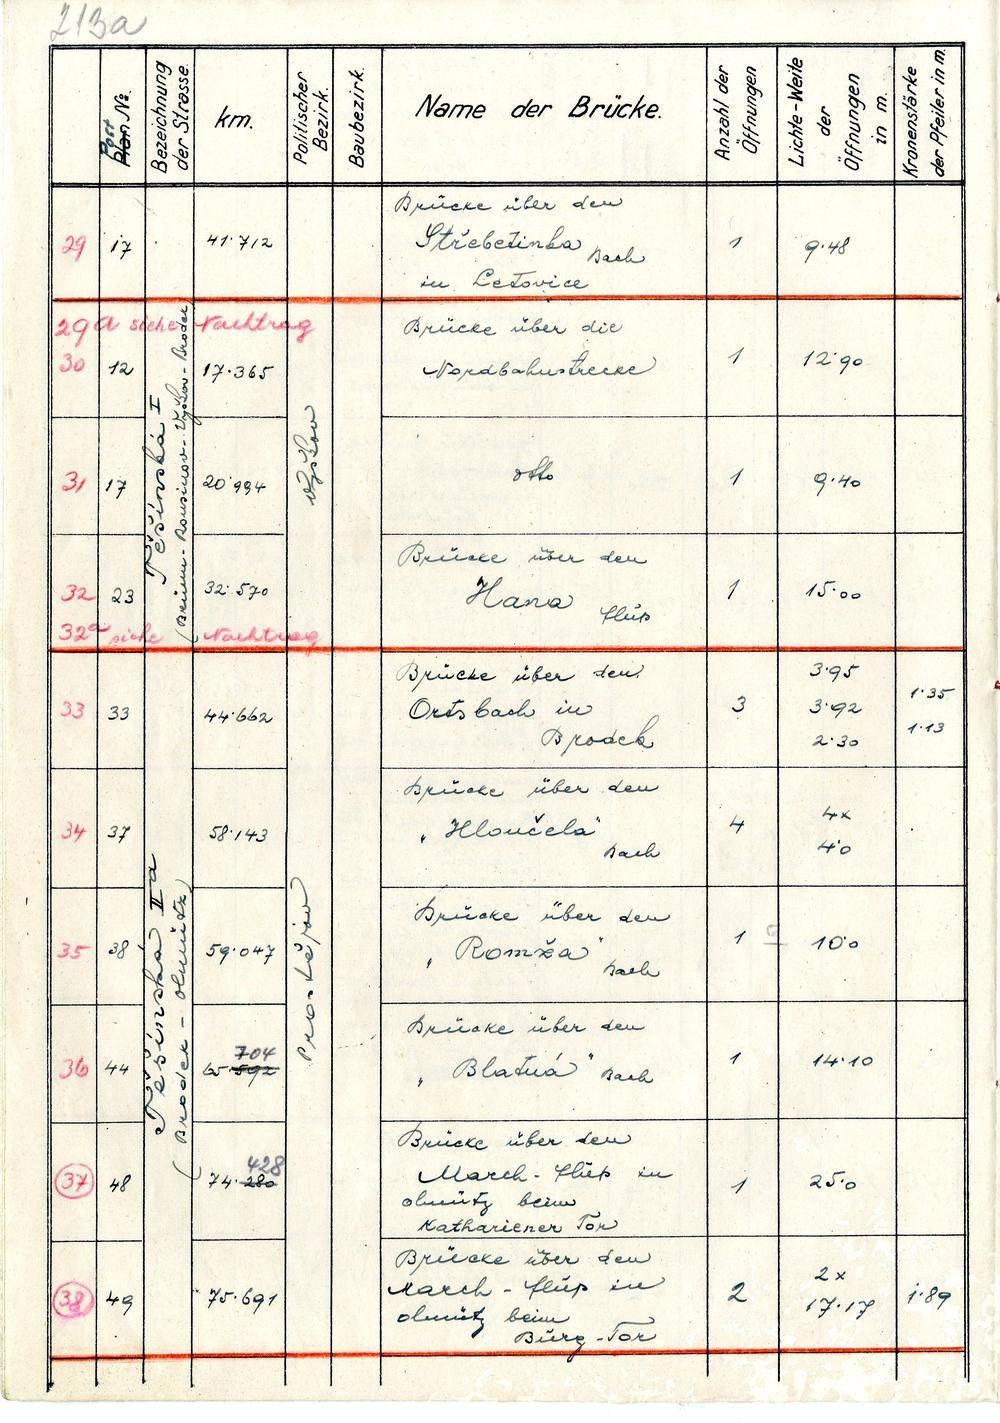 213a
Post
Plan No.
Bezeichnung
der Strasse.
km.
Politischer
Bezirk.
Baubezirk.
Name der Brücke.
Anzahl der
Öffnungen
Lichte-Weite
der
Öffnungen
in m.
Kronenstärke
der Pfeiler in m.
Brücke über den
29 17 41·712 Střebetinka Bach 1 9·48
in Letovice
29a siehe Nachtrag
Brücke über die
30 12 17·365 Nordbahnstrecke 1 12·90
Těšínská I
(Brünn-Rousinov-Vyškov-Brodek
Vyškov
31 17 20·994 dtto 1 9·40
Brücke über den
32 23 32·570 Hana flüß 1 15·00
32a siehe Nachtrag
Brücke über den 3·95
33 33 44·662 Ortsbach in 3 3·92 1·35
Brodek 2·30 1·13
Brücke über den
34 37 58·143 „Hloučela" 4 4x
Bach 4·0
Těšínská II a
(Brodek - Olmütz)
Prostějov
Brücke über den
35 38 59·047 „Romža" 1 10·0
Bach
Brücke über den
704
36 44 65·592 „Blatná" Bach 1 14·10
Brücke über den
428
37 48 74·280 March-flüß in 1 25·0
Olmütz beim
Kathariener Tor
Brücke über den
38 49 75·691 March-flüß in 2 2x 1·89
17·17
Olmütz beim
Bürg-Tor